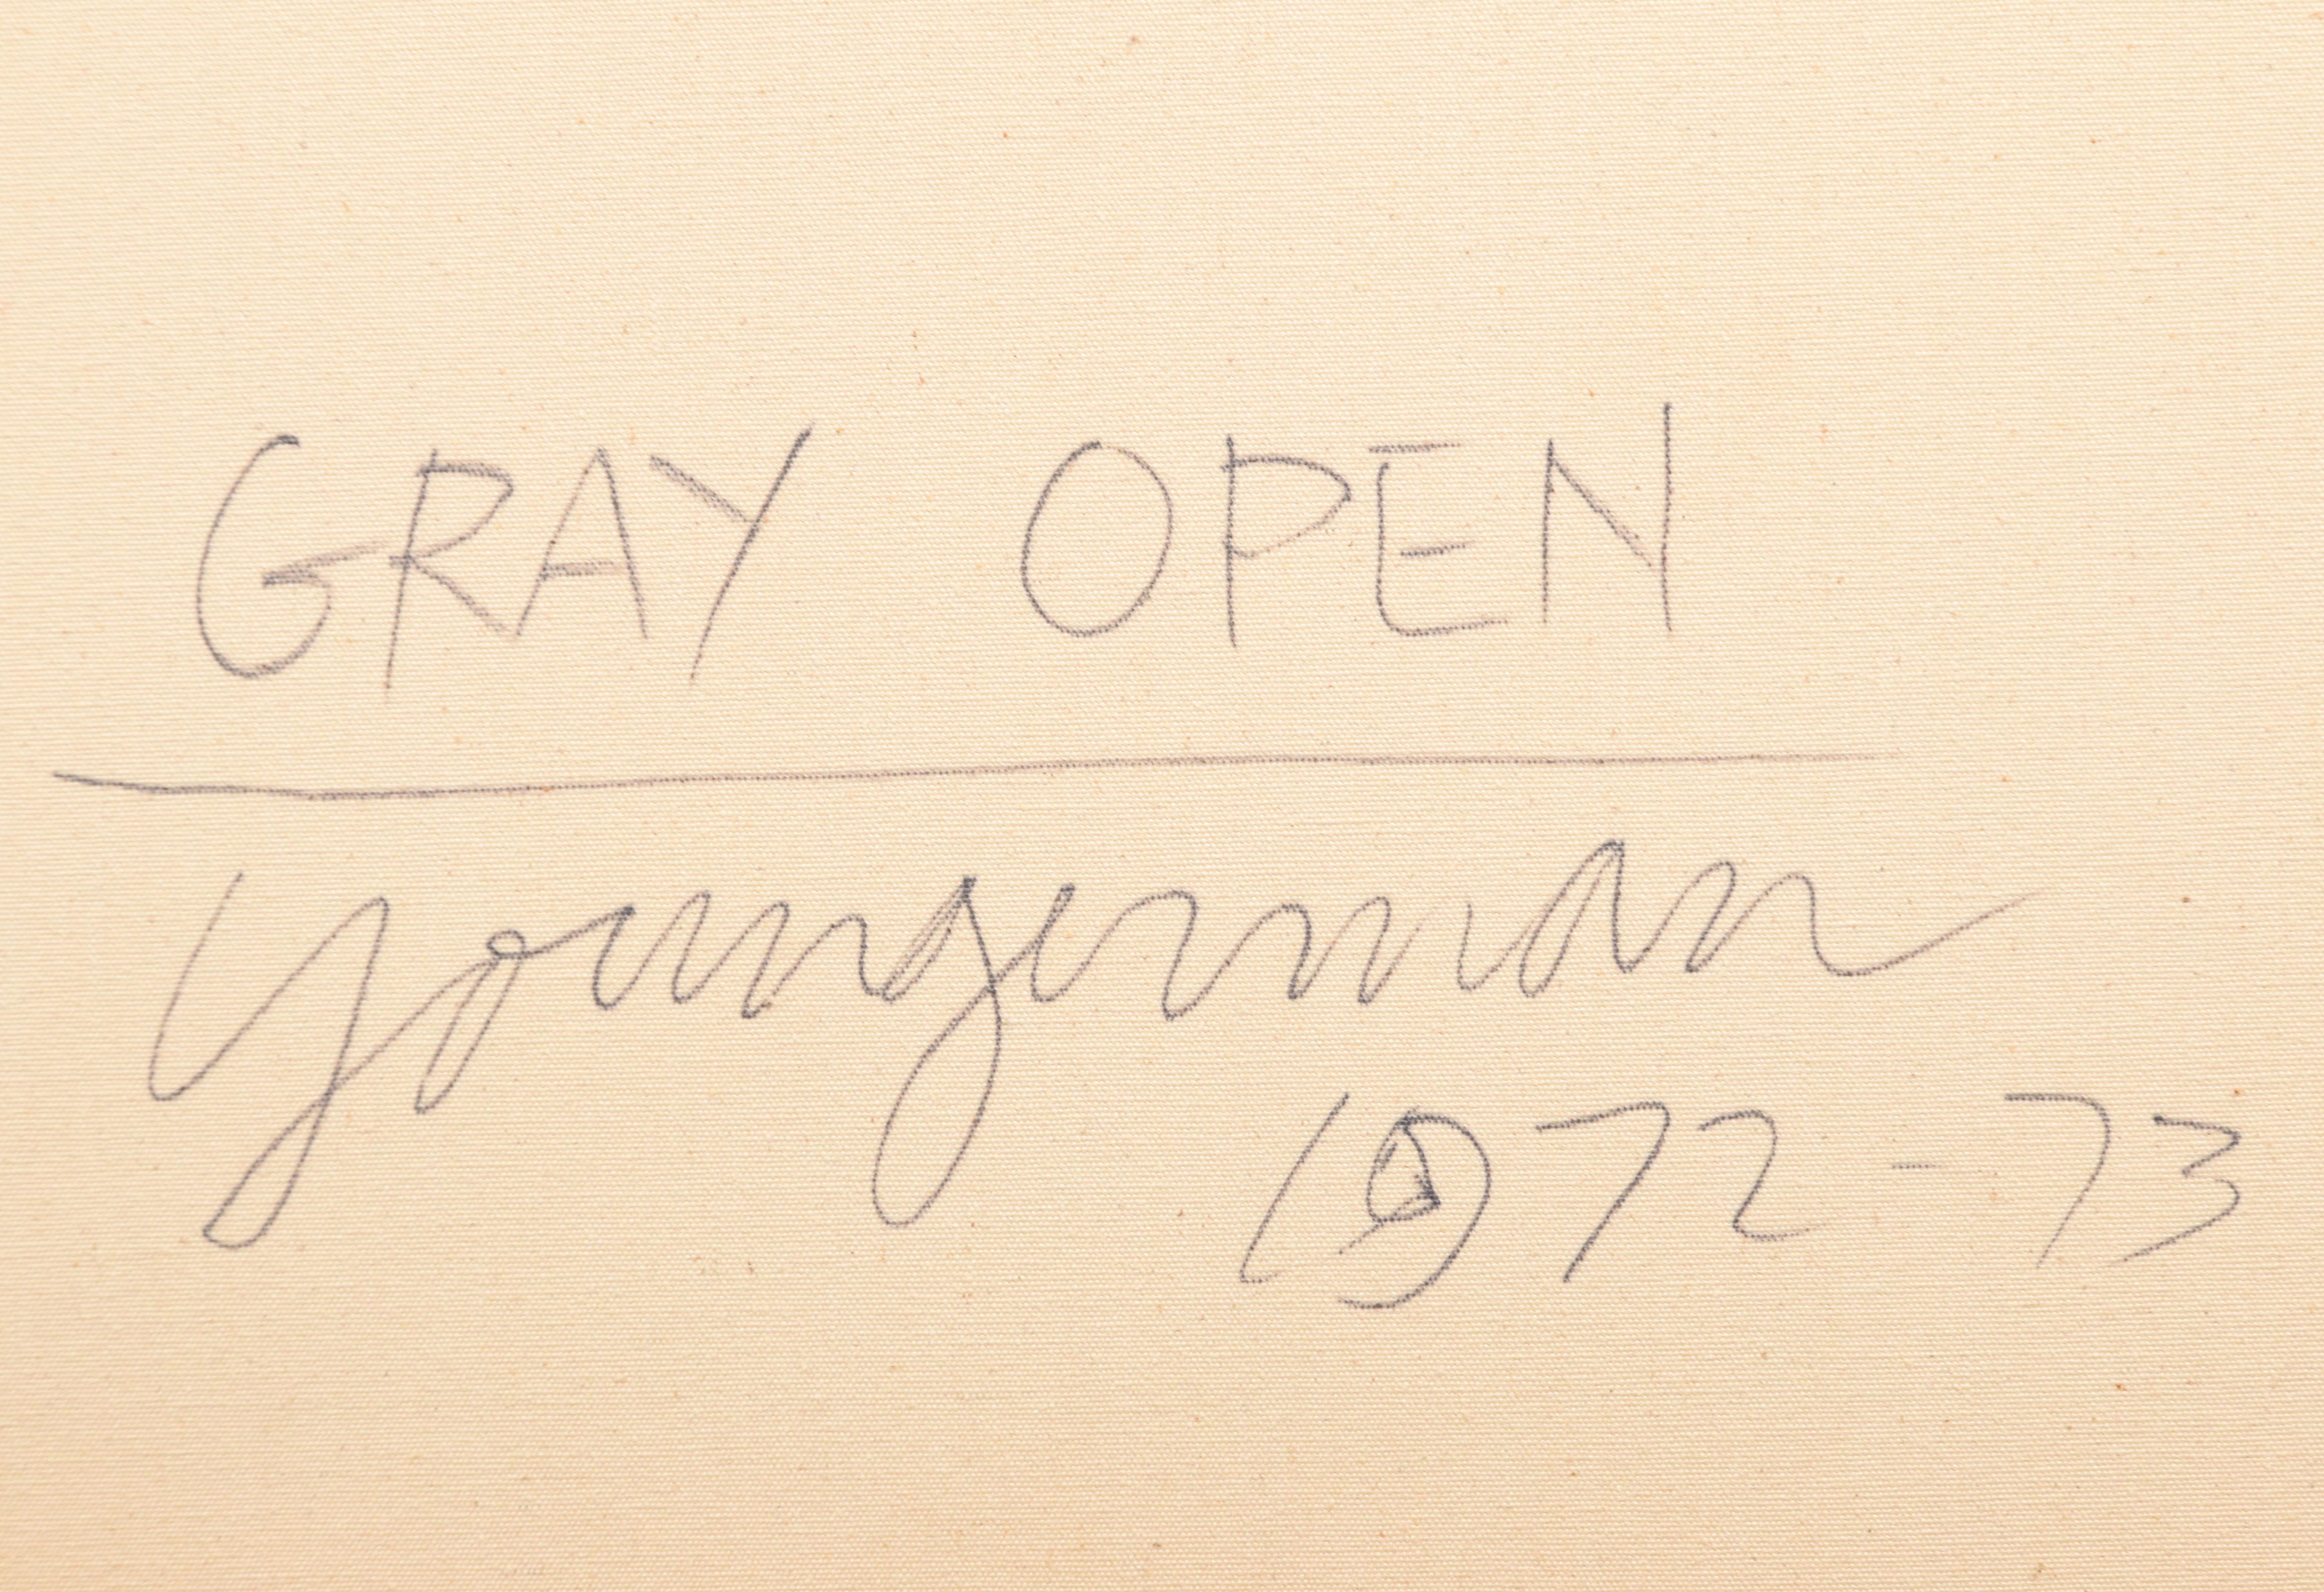 GRAY OPEN
Youngerman
1972-73